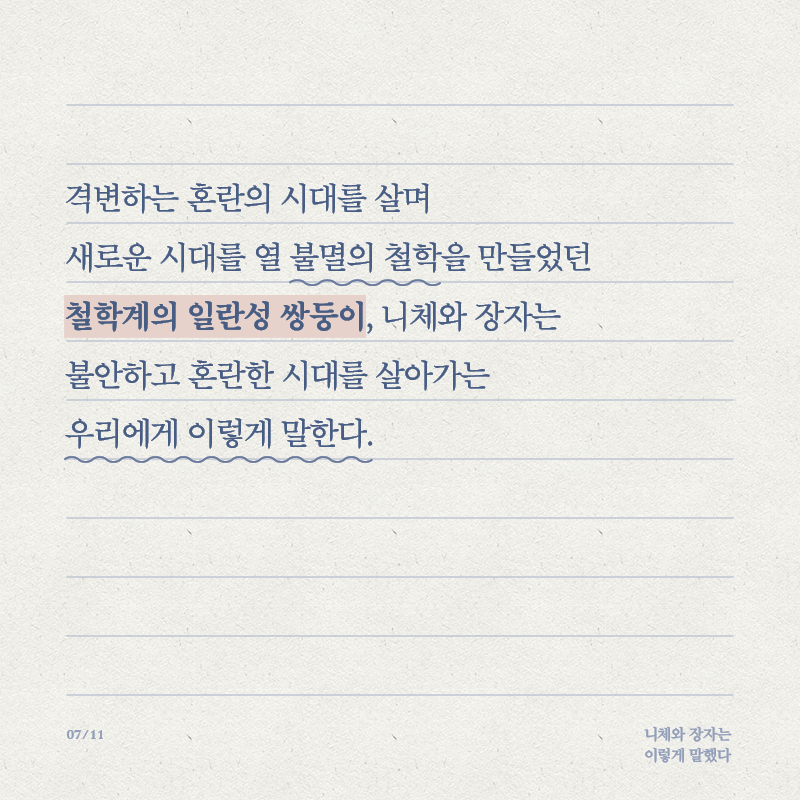 격변하는 혼란의 시대를 살며
새로운 시대를 열 불멸의 철학을 만들었던
철학계의 일란성 쌍둥이, 니체와 장자는
불안하고 혼란한 시대를 살아가는
우리에게 이렇게 말한다.
07/11
니체와 장자는
이렇게 말했다